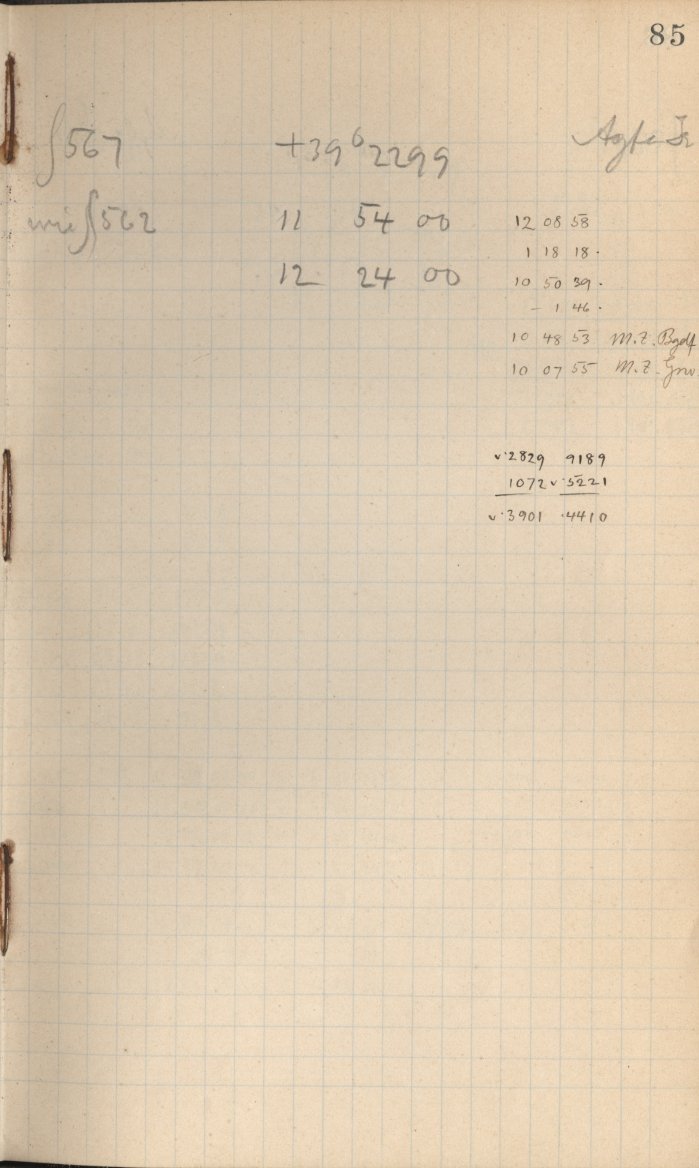 85
∫567 +39⁶2299 Agfa Is
wie ∫562 11 54 00 12 08 58
1 18 18.
12 24 00 10 50 39.
- 1 46.
10 48 53 M.Z. Bgdf
10 07 55 M.Z. Grw
v.2829 9189
1072 v.5221
v.3901 .4410